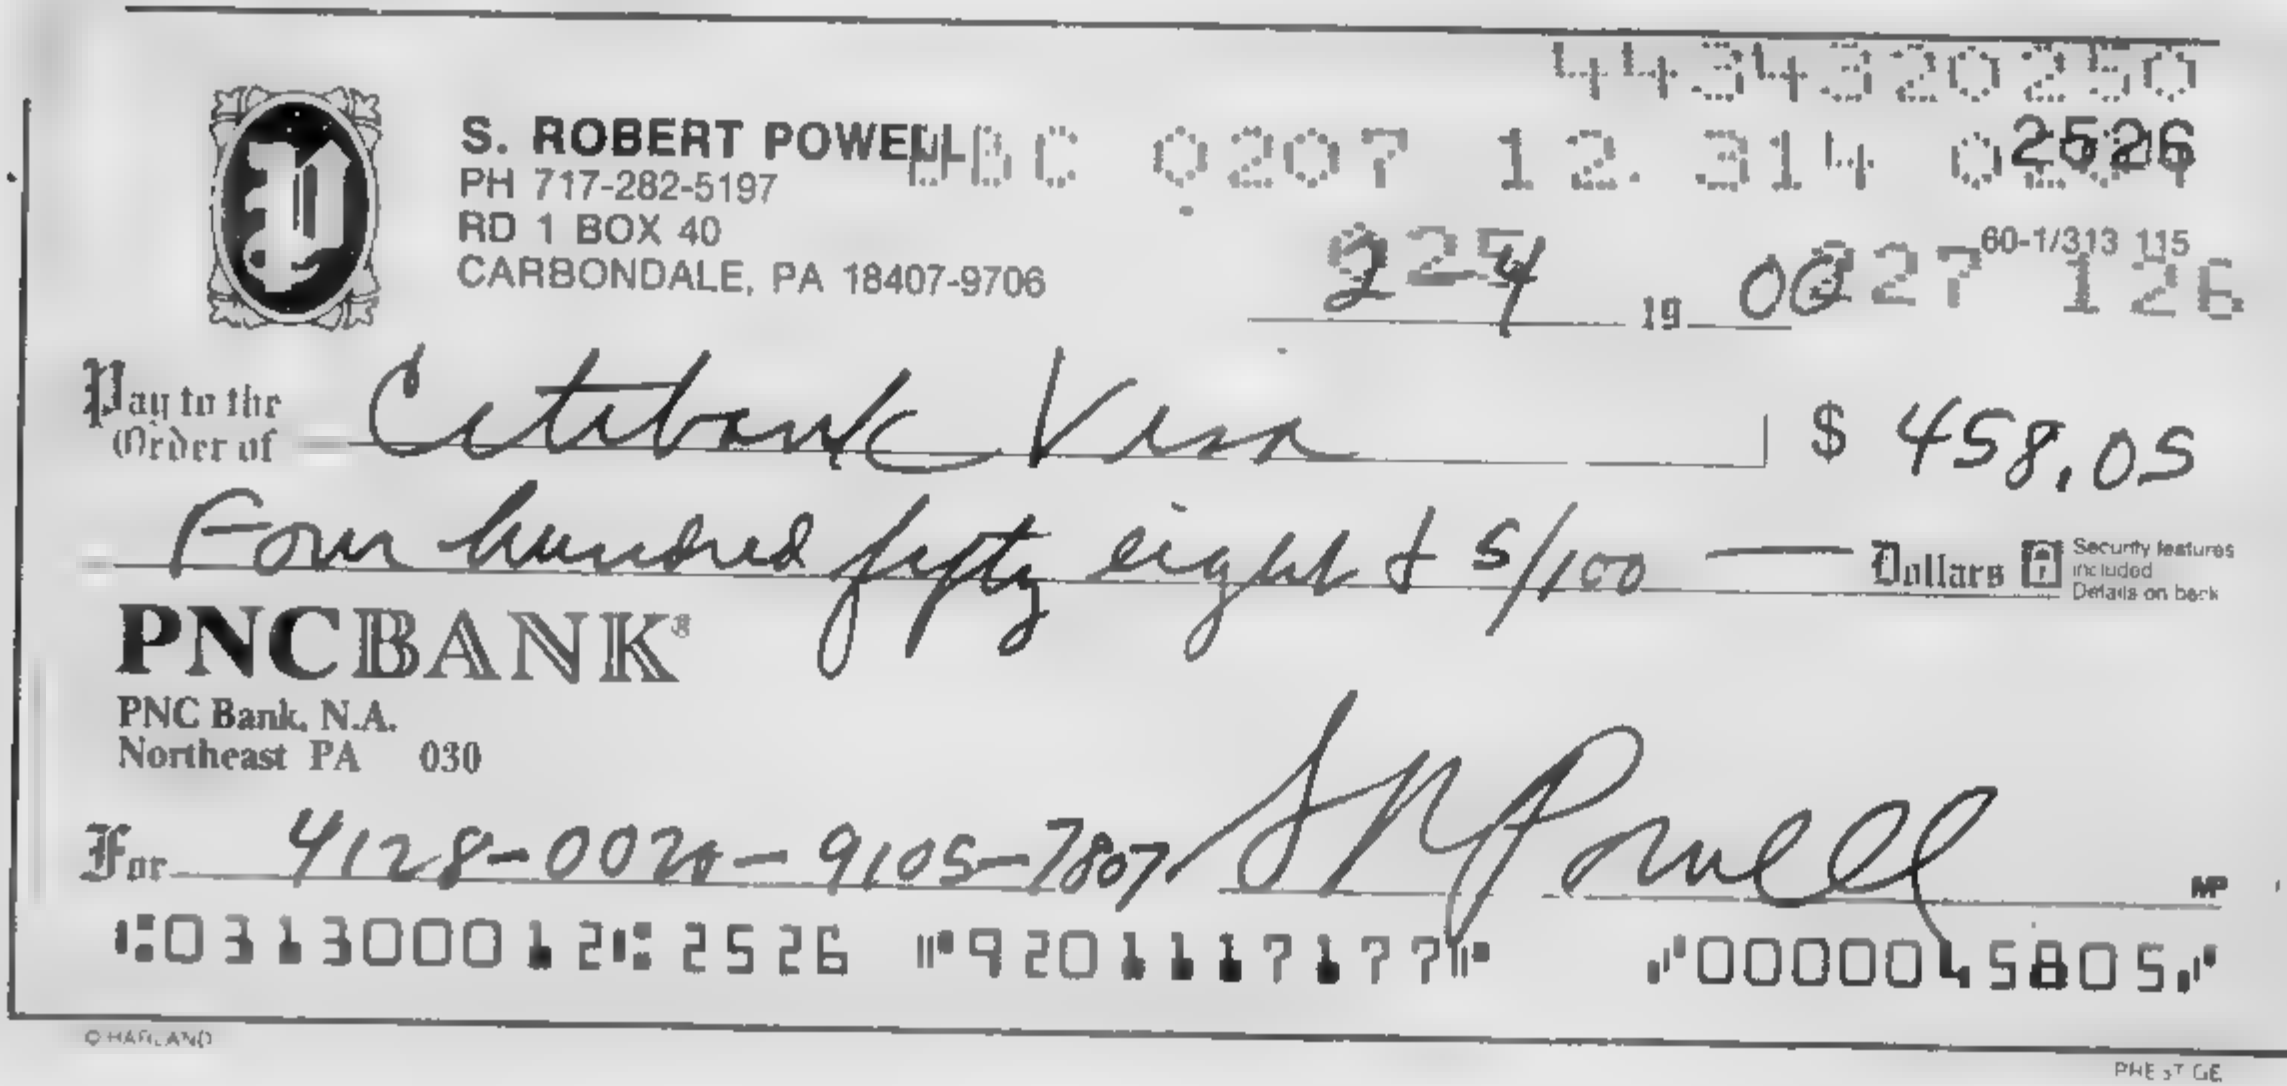 4434320250
S. ROBERT POWELL
BC 0207 12. 314
2526
PH 717-282-5197
RD 1 BOX 40
CARBONDALE, PA 18407-9706
60-1/313 115
2-4 19 00
327 126
Pay to the
Order of Citibank Visa $ 458.05
Four hundred fifty eight & 5/100 Dollars
Security features
included
Details on back
PNCBANK®
PNC Bank, N.A.
Northeast PA 030
For 4128-0020-9105-7807 S R Powell MP
⑆031300012⑆ 2526 ⑈9201117177⑈ ⑈0000045805⑈
© HARLAND
PRESTIGE